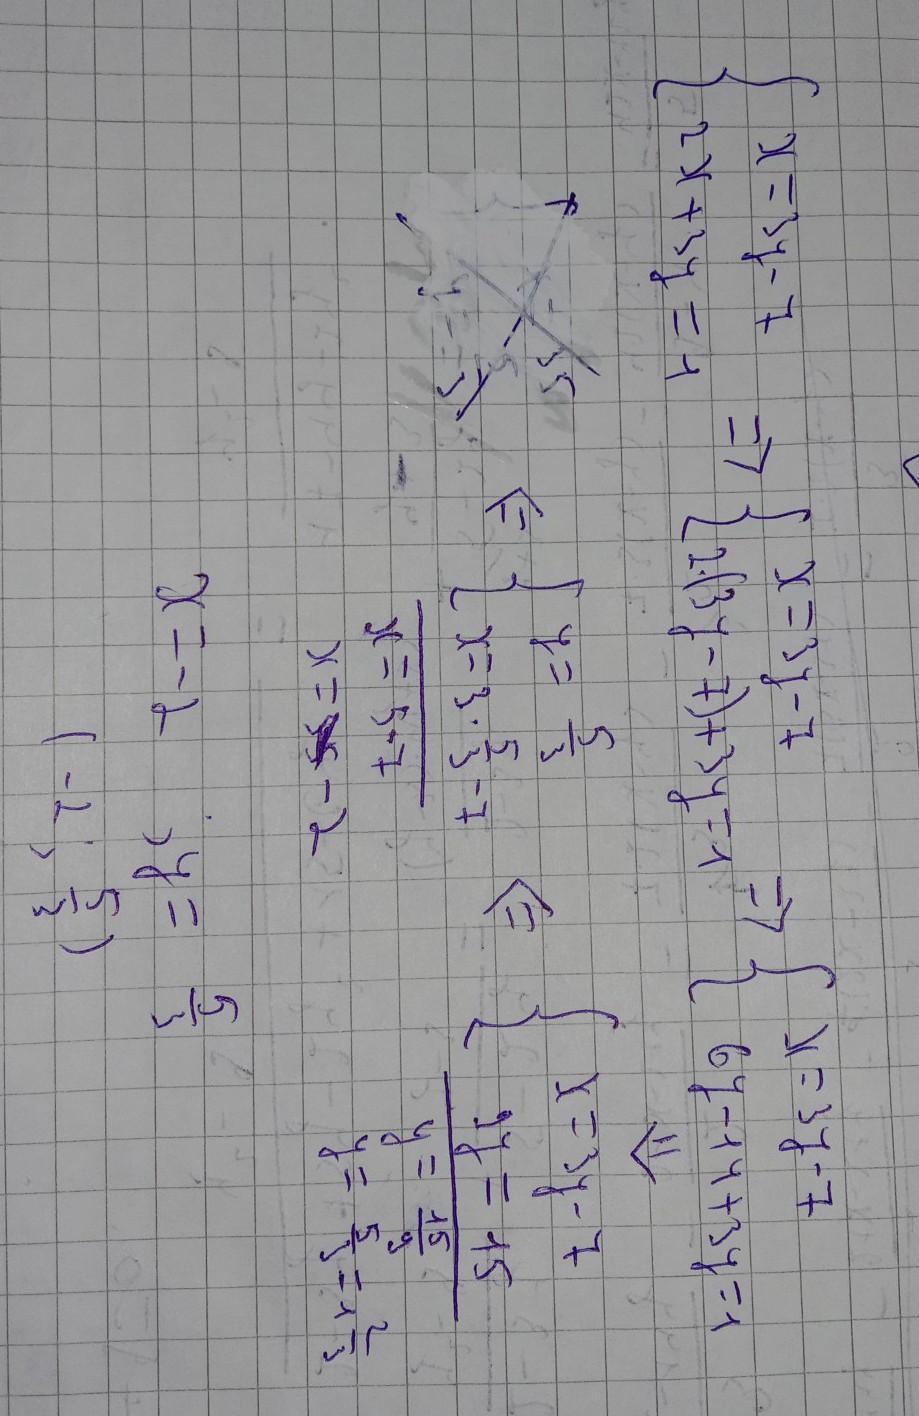 x=3y-7
2x+3y=1
⇒
x=3y-7
2·(3y-7)+3y=1
⇒
x=3y-7
6y-14+3y=1
⇓
x=3y-7
9y=15
y=15/9
y=5/3=1 2/3
⇐
y=5/3
x=3·5/3-7
x=5-7
x=-2
x=-2, y=5/3
(-2, 5/3)